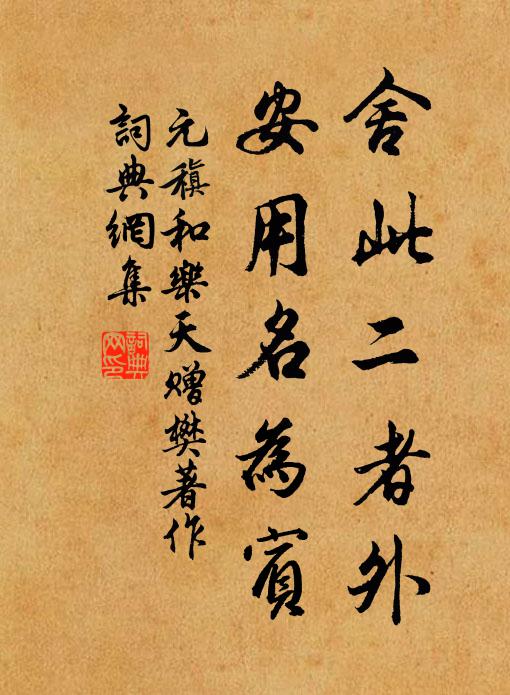 舍此二者外
安用名為賓
元稹和樂天贈樊著作
詞典網集
詞典網印